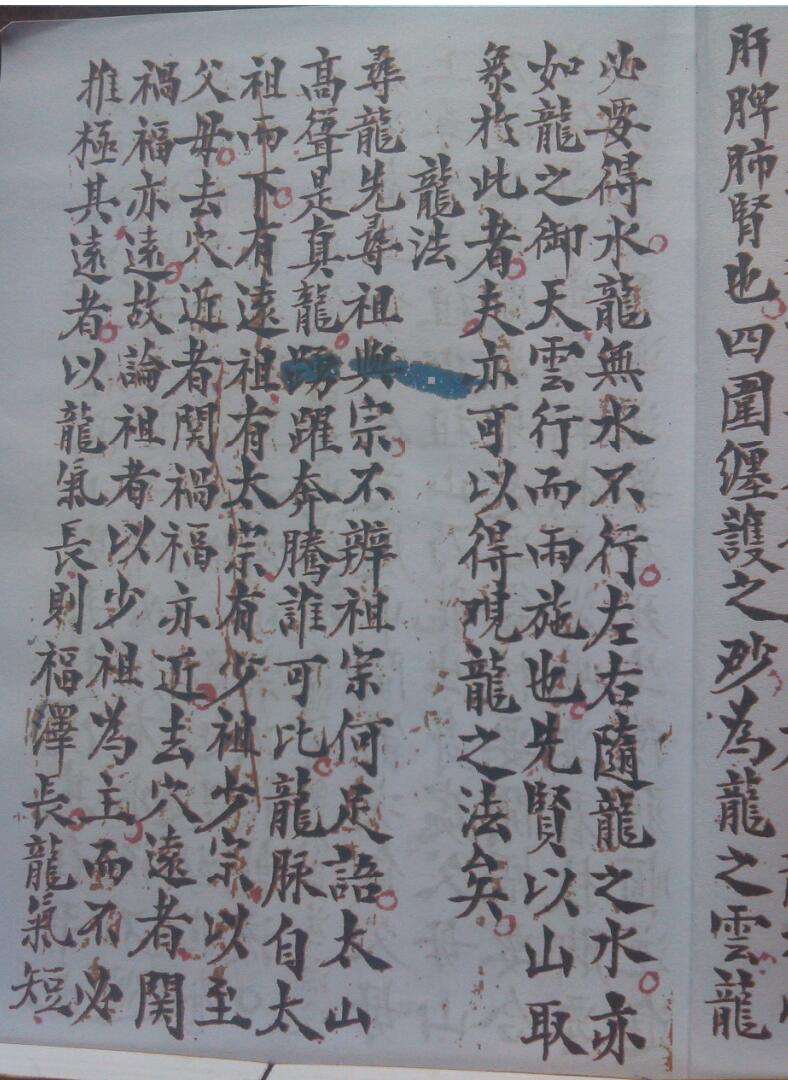 肝脾肺腎也四圍纒護之砂為龍之雲龍
必要得水龍無水不行左右隨龍之水亦
如龍之御天雲行而雨施也先賢以山取
象於此者夫亦可以得觀龍之法矣
龍法
尋龍先尋祖與宗不辨祖宗何足語太山
高聳是真龍踴躍奔騰誰可比龍脉自太
祖而下有遠祖有太宗有少祖少宗以至
父母去穴近者関禍福亦近去穴遠者関
禍福亦遠故論祖者以少祖為主而不必
推極其遠者以龍氣長則福澤長龍氣短